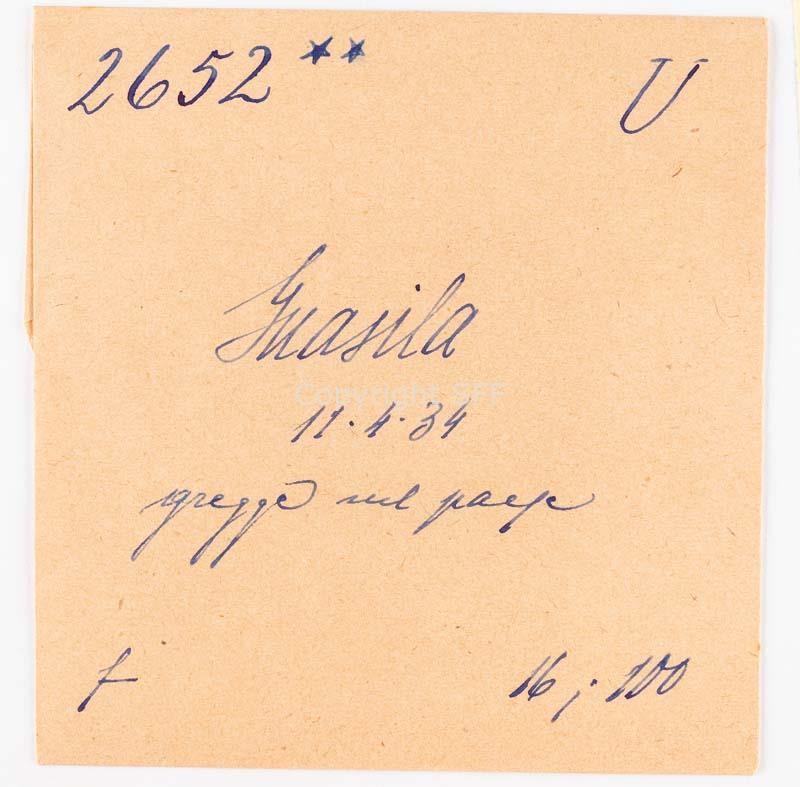 2652 ** U
Guasila
Copyright SFF
11.4.34
gregge nel paese
f 16; 100